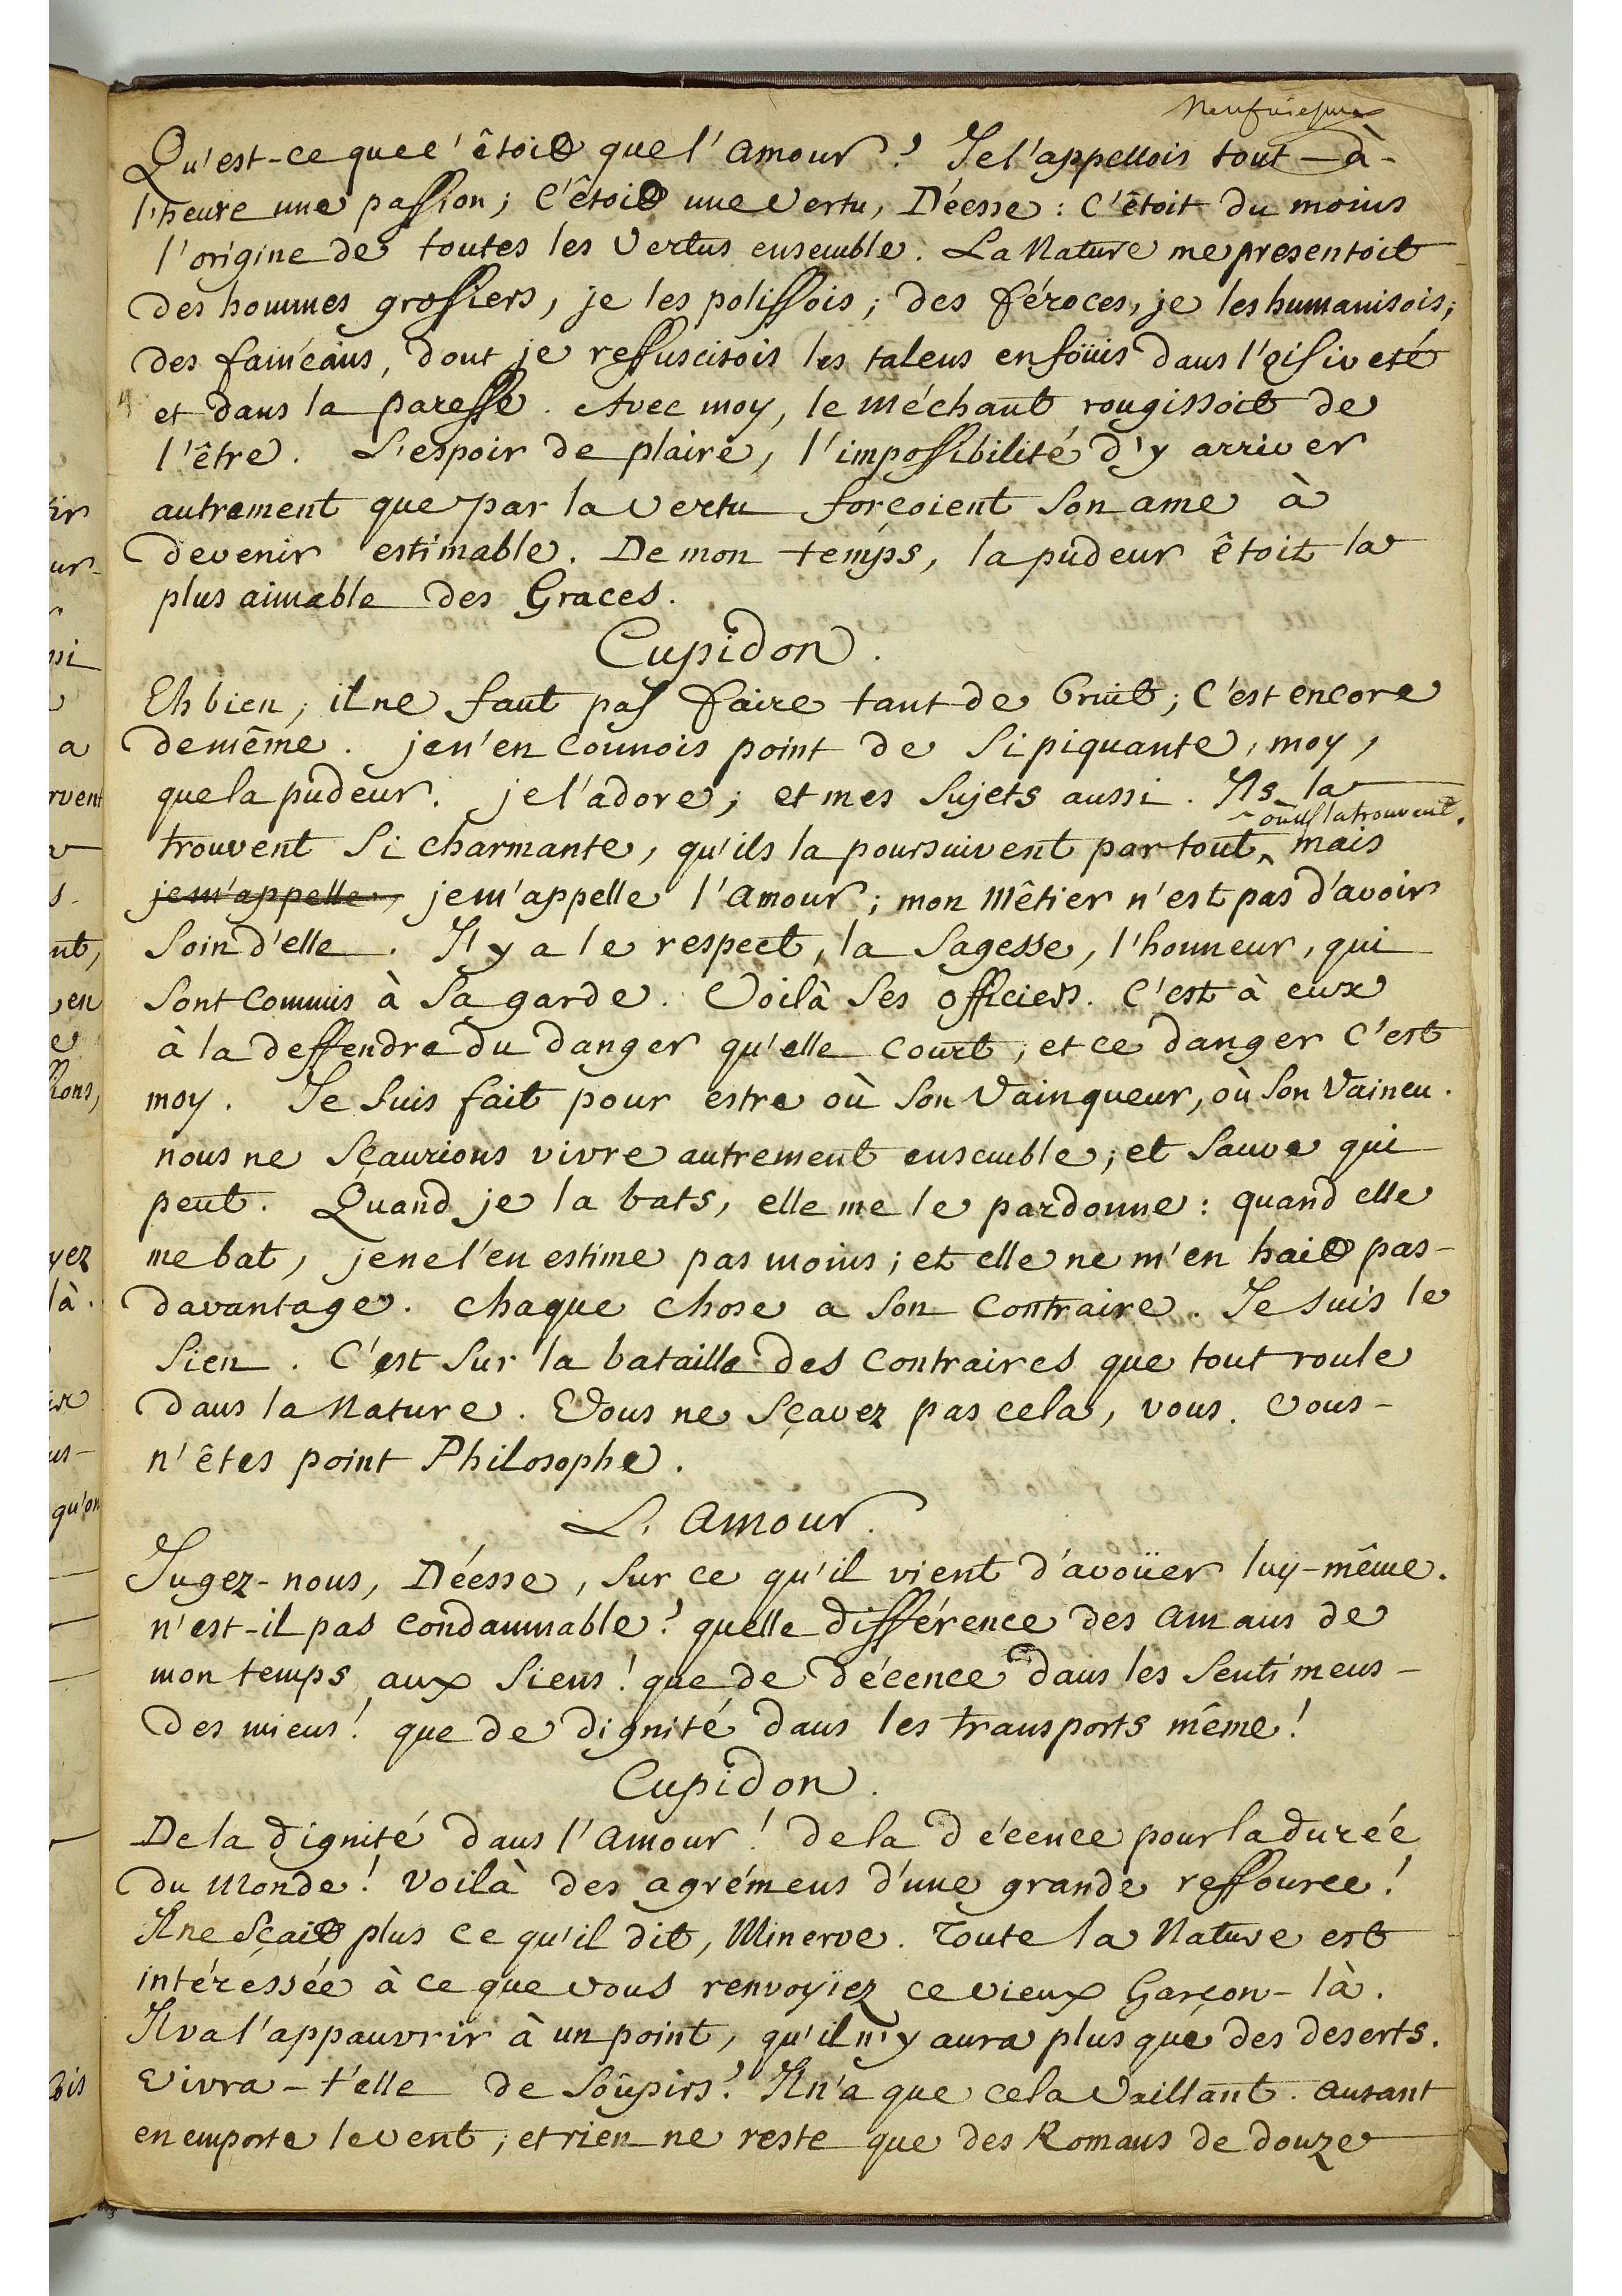 Neufviesme
Qu'est-ce que c'êtoit que l'Amour? Je l'appellois tout-à-
l'heure une passion; C'êtoit une Vertu, Déesse: C'êtoit du moins
l'origine de toutes les Vertus ensemble. La Nature me presentoit
des hommes grossiers, je les polissois; des féroces, je les humanisois;
des fainéans, dont je ressuscitois les talens enfoüis dans l'oisiveté
et dans la paresse. Avec moy, le méchant rougissoit de
l'être. L'espoir de plaire, l'impossibilité d'y arriver
autrement que par la Vertu forçoient Son ame à
devenir estimable. De mon temps, la pudeur êtoit la
plus aimable des Graces.
Cupidon.
Eh bien, il ne faut pas faire tant de bruit; C'est encore
de même. je n'en connois point de Si piquante, moy,
que la pudeur. je l'adore; et mes Sujets aussi. Ils la
trouvent Si charmante, qu'ils la poursuivent partout ^ où ils la trouvent. mais
je m'appelle, je m'appelle l'Amour; mon Mêtier n'est pas d'avoir
Soin d'elle. Il y a le respect, la Sagesse, l'honneur, qui
Sont Commis à Sa garde. Voilà Ses officiers. C'est à eux
à la deffendre du danger qu'elle Court, et ce danger C'est
moy. Je Suis fait pour estre où Son Vainqueur, où Son Vaincu.
nous ne Sçaurions vivre autrement ensemble; et Sauve qui
peut. Quand je la bats, elle me le pardonne: quand elle
me bat, je ne l'en estime pas moins; et elle ne m'en hait pas-
davantage. Chaque Chose a Son Contraire. Je suis le
Sien. C'est Sur la bataille des Contraires que tout roule
dans la Nature. Vous ne Sçavez pas cela, vous. Vous-
n'êtes point Philosophe.
L'Amour.
Jugez-nous, Déesse, Sur ce qu'il vient d'avoüer luy-même.
n'est-il pas Condamnable? quelle différence des Amans de
mon temps aux Siens! que de décence dans les Sentimens-
des miens! que de dignité dans les transports même!
Cupidon.
De la dignité dans l'Amour! de la décence pour la durée
du Monde! Voilà des agrémens d'une grande ressource!
Il ne Sçait plus Ce qu'il dit, Minerve. Toute la Nature est
intéressée à Ce que vous renvoyïez Ce vieux Garçon-là.
Il va l'appauvrir à un point, qu'il n'y aura plus que des deserts.
Vivra-t'elle de Soûpirs? Il n'a que cela Vaillant. Autant
en emporte le vent; et rien ne reste que des Romans de douze